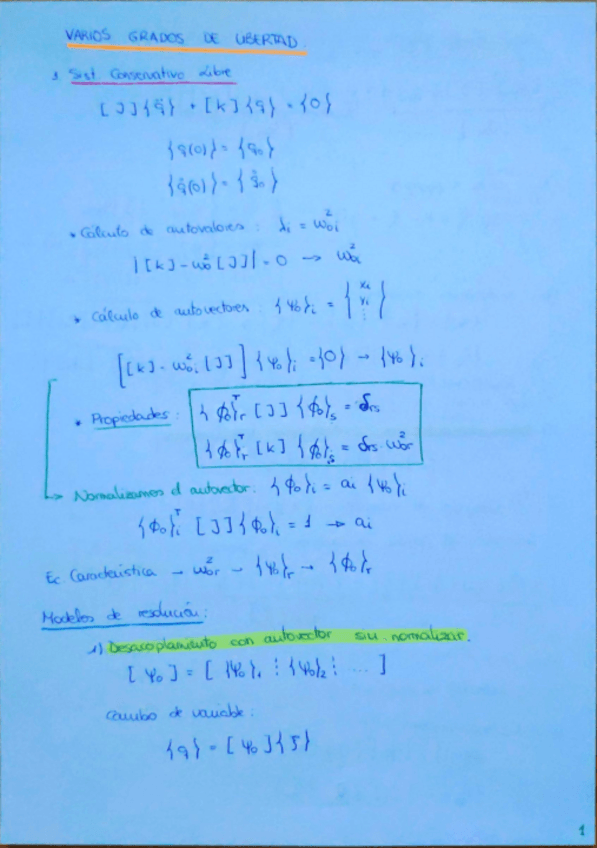 VARIOS GRADOS DE LIBERTAD.
1 Sist. Conservativo Libre
[J]{q̈} + [k]{q} = {0}
{q(0)} = {q₀}
{q̇(0)} = {q̇₀}
* Cálculo de autovalores: λi = ω₀i²
|[k] - ω₀²[J]| = 0 → ω₀i²
* Cálculo de autovectores: {ψ₀}i = {xi yi ⋮}
[[k] - ω₀i² [J]] {ψ₀}i = {0} → {ψ₀}i
* Propiedades: {ϕ₀}rᵀ [J] {ϕ₀}s = δrs
{ϕ₀}rᵀ [k] {ϕ₀}s = δrs · ω₀r²
→ Normalizamos el autovector: {ϕ₀}i = ai {ψ₀}i
{ϕ₀}iᵀ [J] {ϕ₀}i = 1 → ai
Ec Característica → ω₀r² → {ψ₀}r → {ϕ₀}r
Modelos de resolución:
1) Desacoplamiento con autovector sin normalizar.
[ψ₀] = [{ψ₀}₁ ⋮ {ψ₀}₂ ⋮ ...]
Cambio de variable:
{q} = [ψ₀]{ζ}
1